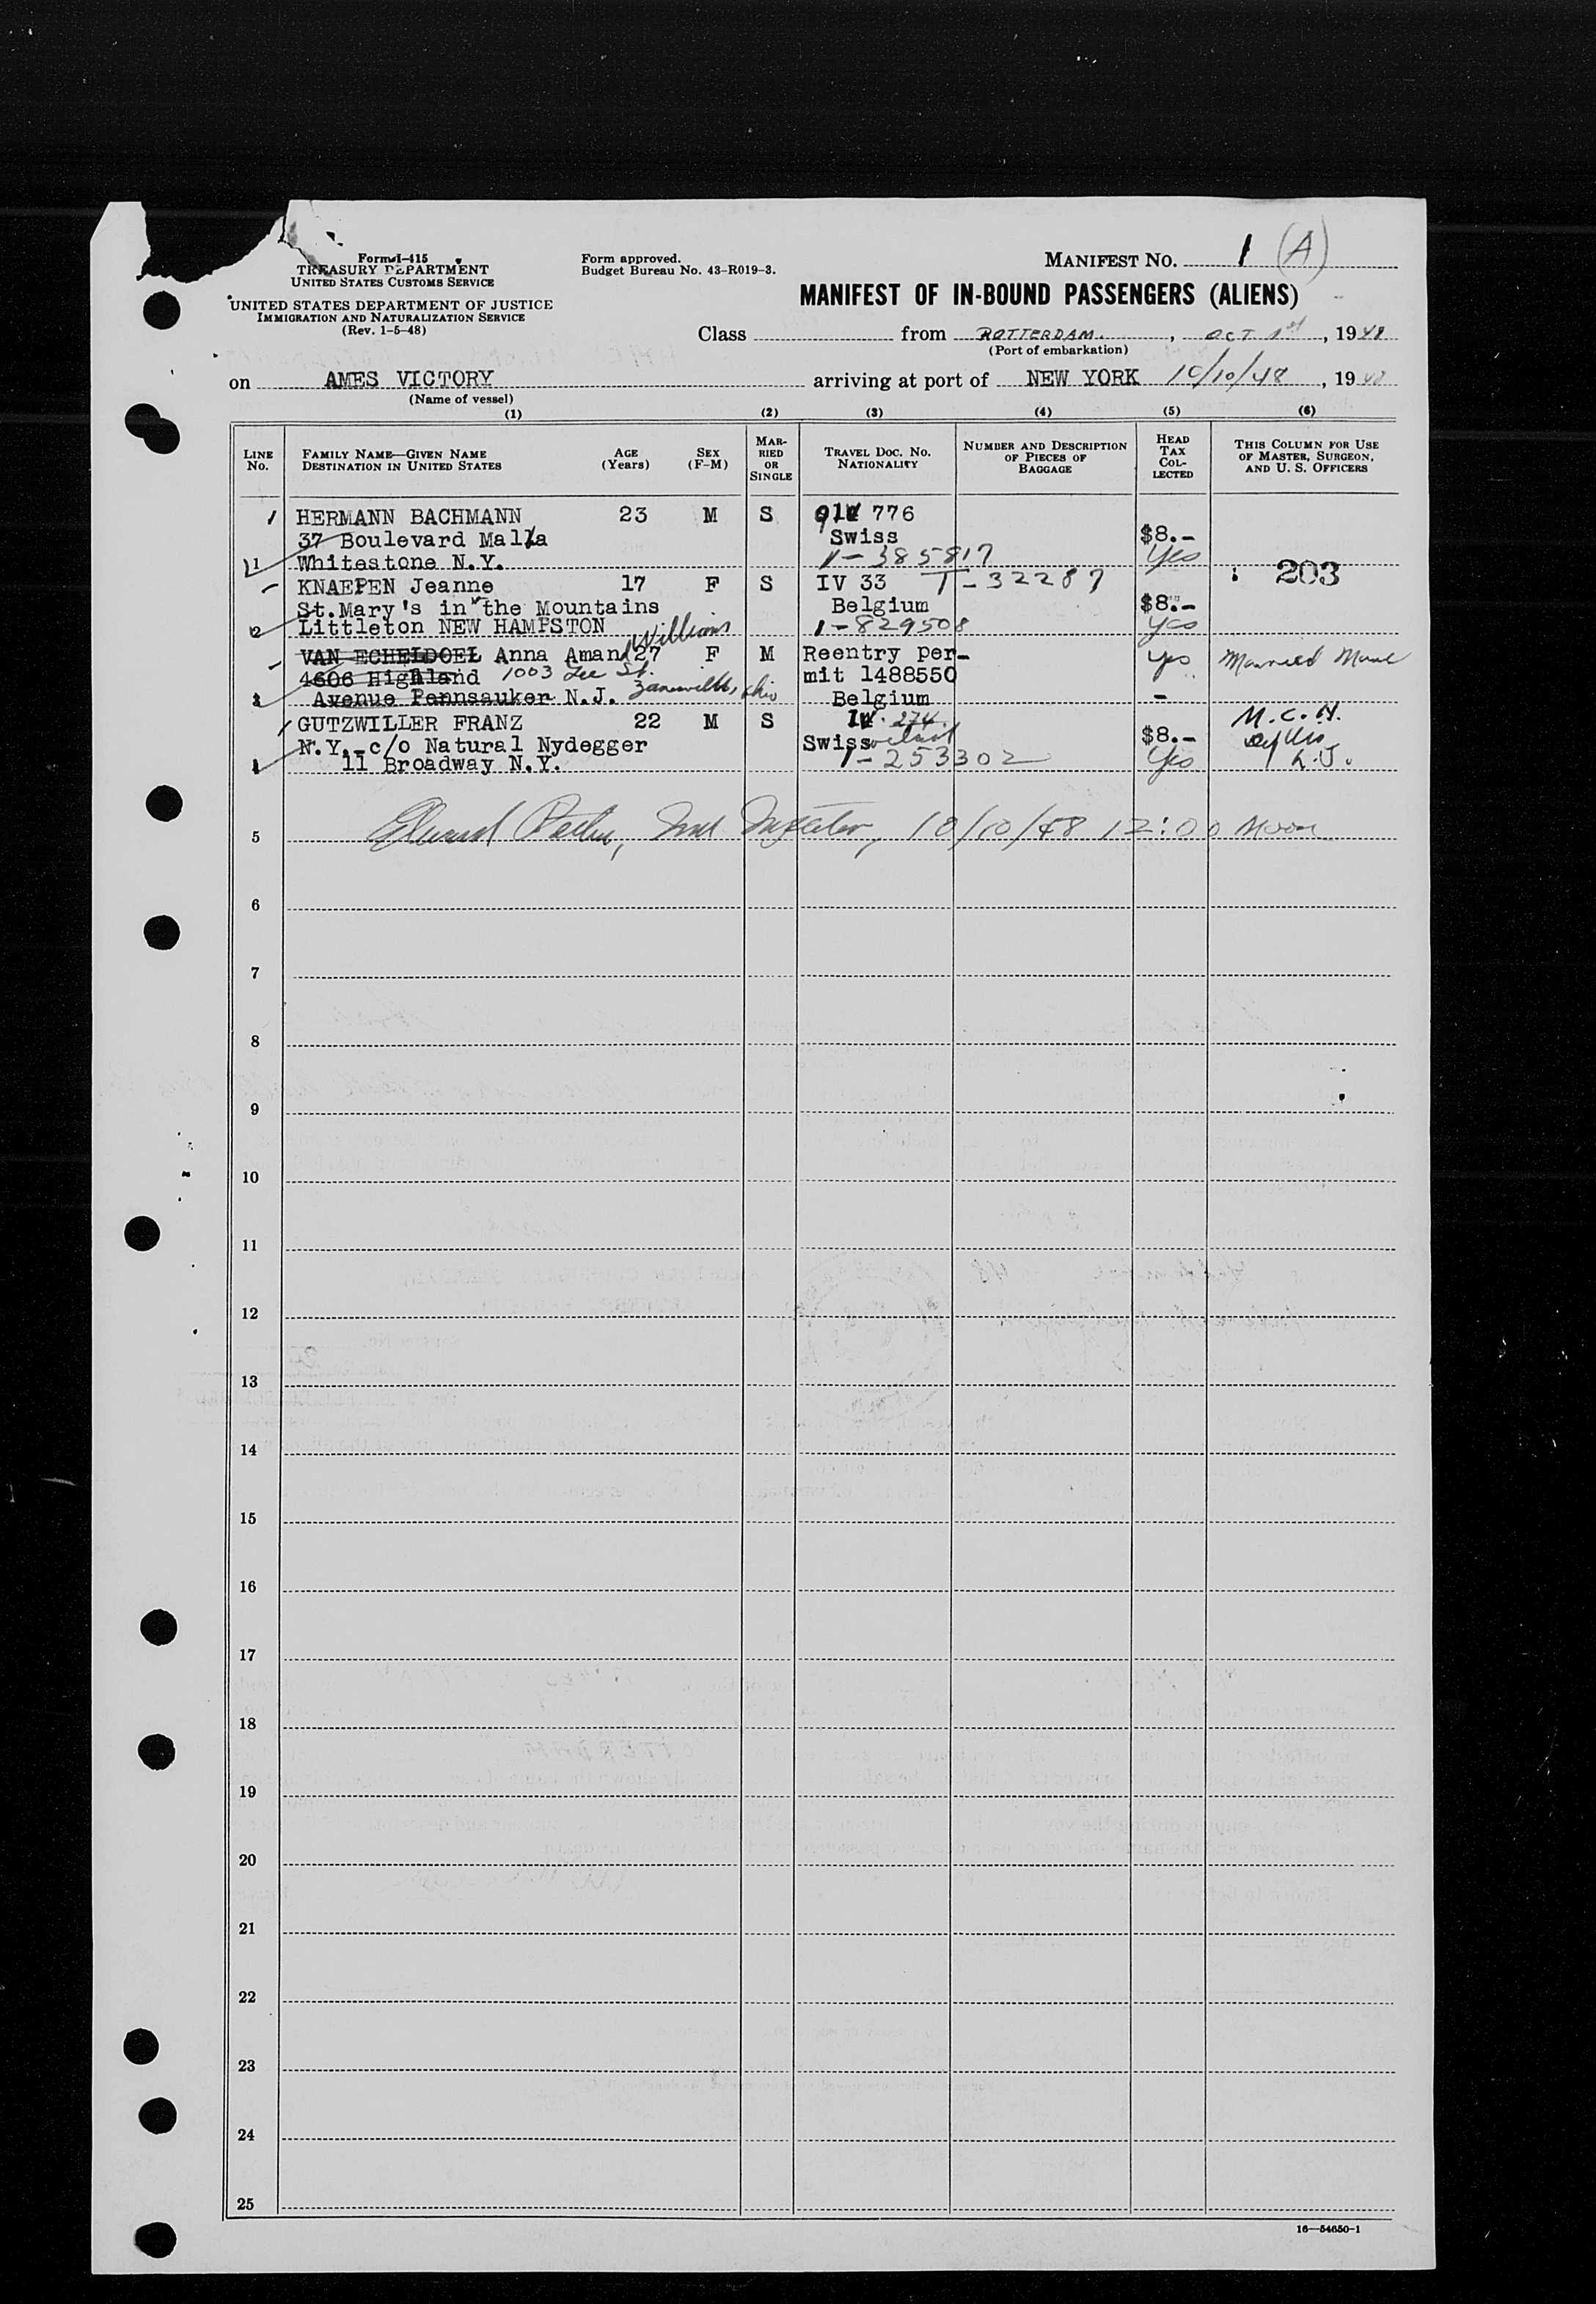 Form I-415
TREASURY DEPARTMENT
UNITED STATES CUSTOMS SERVICE
UNITED STATES DEPARTMENT OF JUSTICE
IMMIGRATION AND NATURALIZATION SERVICE
(Rev. 1-5-48)
Form approved.
Budget Bureau No. 43-R019-3.
MANIFEST NO. 1 (A)
MANIFEST OF IN-BOUND PASSENGERS (ALIENS)
Class from ROTTERDAM. , OCT 1st , 1948
(Port of embarkation)
on AMES VICTORY arriving at port of NEW YORK 10/10/48 , 1948
(Name of vessel)
(1) (2) (3) (4) (5) (6)
LINE NO.
FAMILY NAME—GIVEN NAME
DESTINATION IN UNITED STATES
AGE (Years)
SEX (F-M)
MARRIED OR SINGLE
TRAVEL DOC. NO. NATIONALITY
NUMBER AND DESCRIPTION OF PIECES OF BAGGAGE
HEAD TAX COLLECTED
THIS COLUMN FOR USE OF MASTER, SURGEON, AND U. S. OFFICERS
HERMANN BACHMANN 23 M S 776
37 Boulevard Malba Swiss $8.-
1 Whitestone N.Y. 1-385817 Yes
203
KNAEPEN Jeanne 17 F S IV 33 T-32287
St.Mary's in the Mountains Belgium $8.-
2 Littleton NEW HAMPSTON 1-829508 yes
Williams
VAN ECHELDOEL Anna Amand 27 F M Reentry per- yes Married
4606 Highland 1003 Lee St. mit 1488550
3 Avenue Pennsauken N.J. Zanesville, Ohio Belgium -
GUTZWILLER FRANZ 22 M S IV. 274 M.C.H.
N.Y. c/o Natural Nydegger Swiss $8.-
11 Broadway N.Y. 1-253302 Yes L.J.
5 Inspector, 10/10/48 12:00 Noon
6
7
8
9
10
11
12
13
14
15
16
17
18
19
20
21
22
23
24
25
16—54650-1